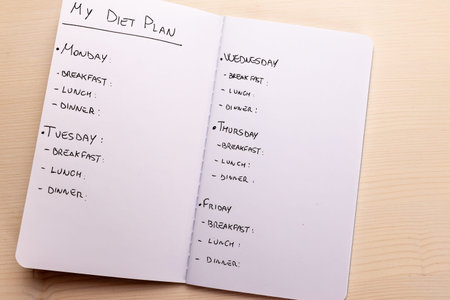 My Diet Plan
• Monday
- Breakfast:
- Lunch:
- Dinner:
• Tuesday:
- Breakfast:
- Lunch:
- Dinner:
• Wednesday
- Breakfast:
- Lunch:
- Dinner:
• Thursday
- Breakfast:
- Lunch:
- Dinner:
• Friday
- Breakfast:
- Lunch:
- Dinner: